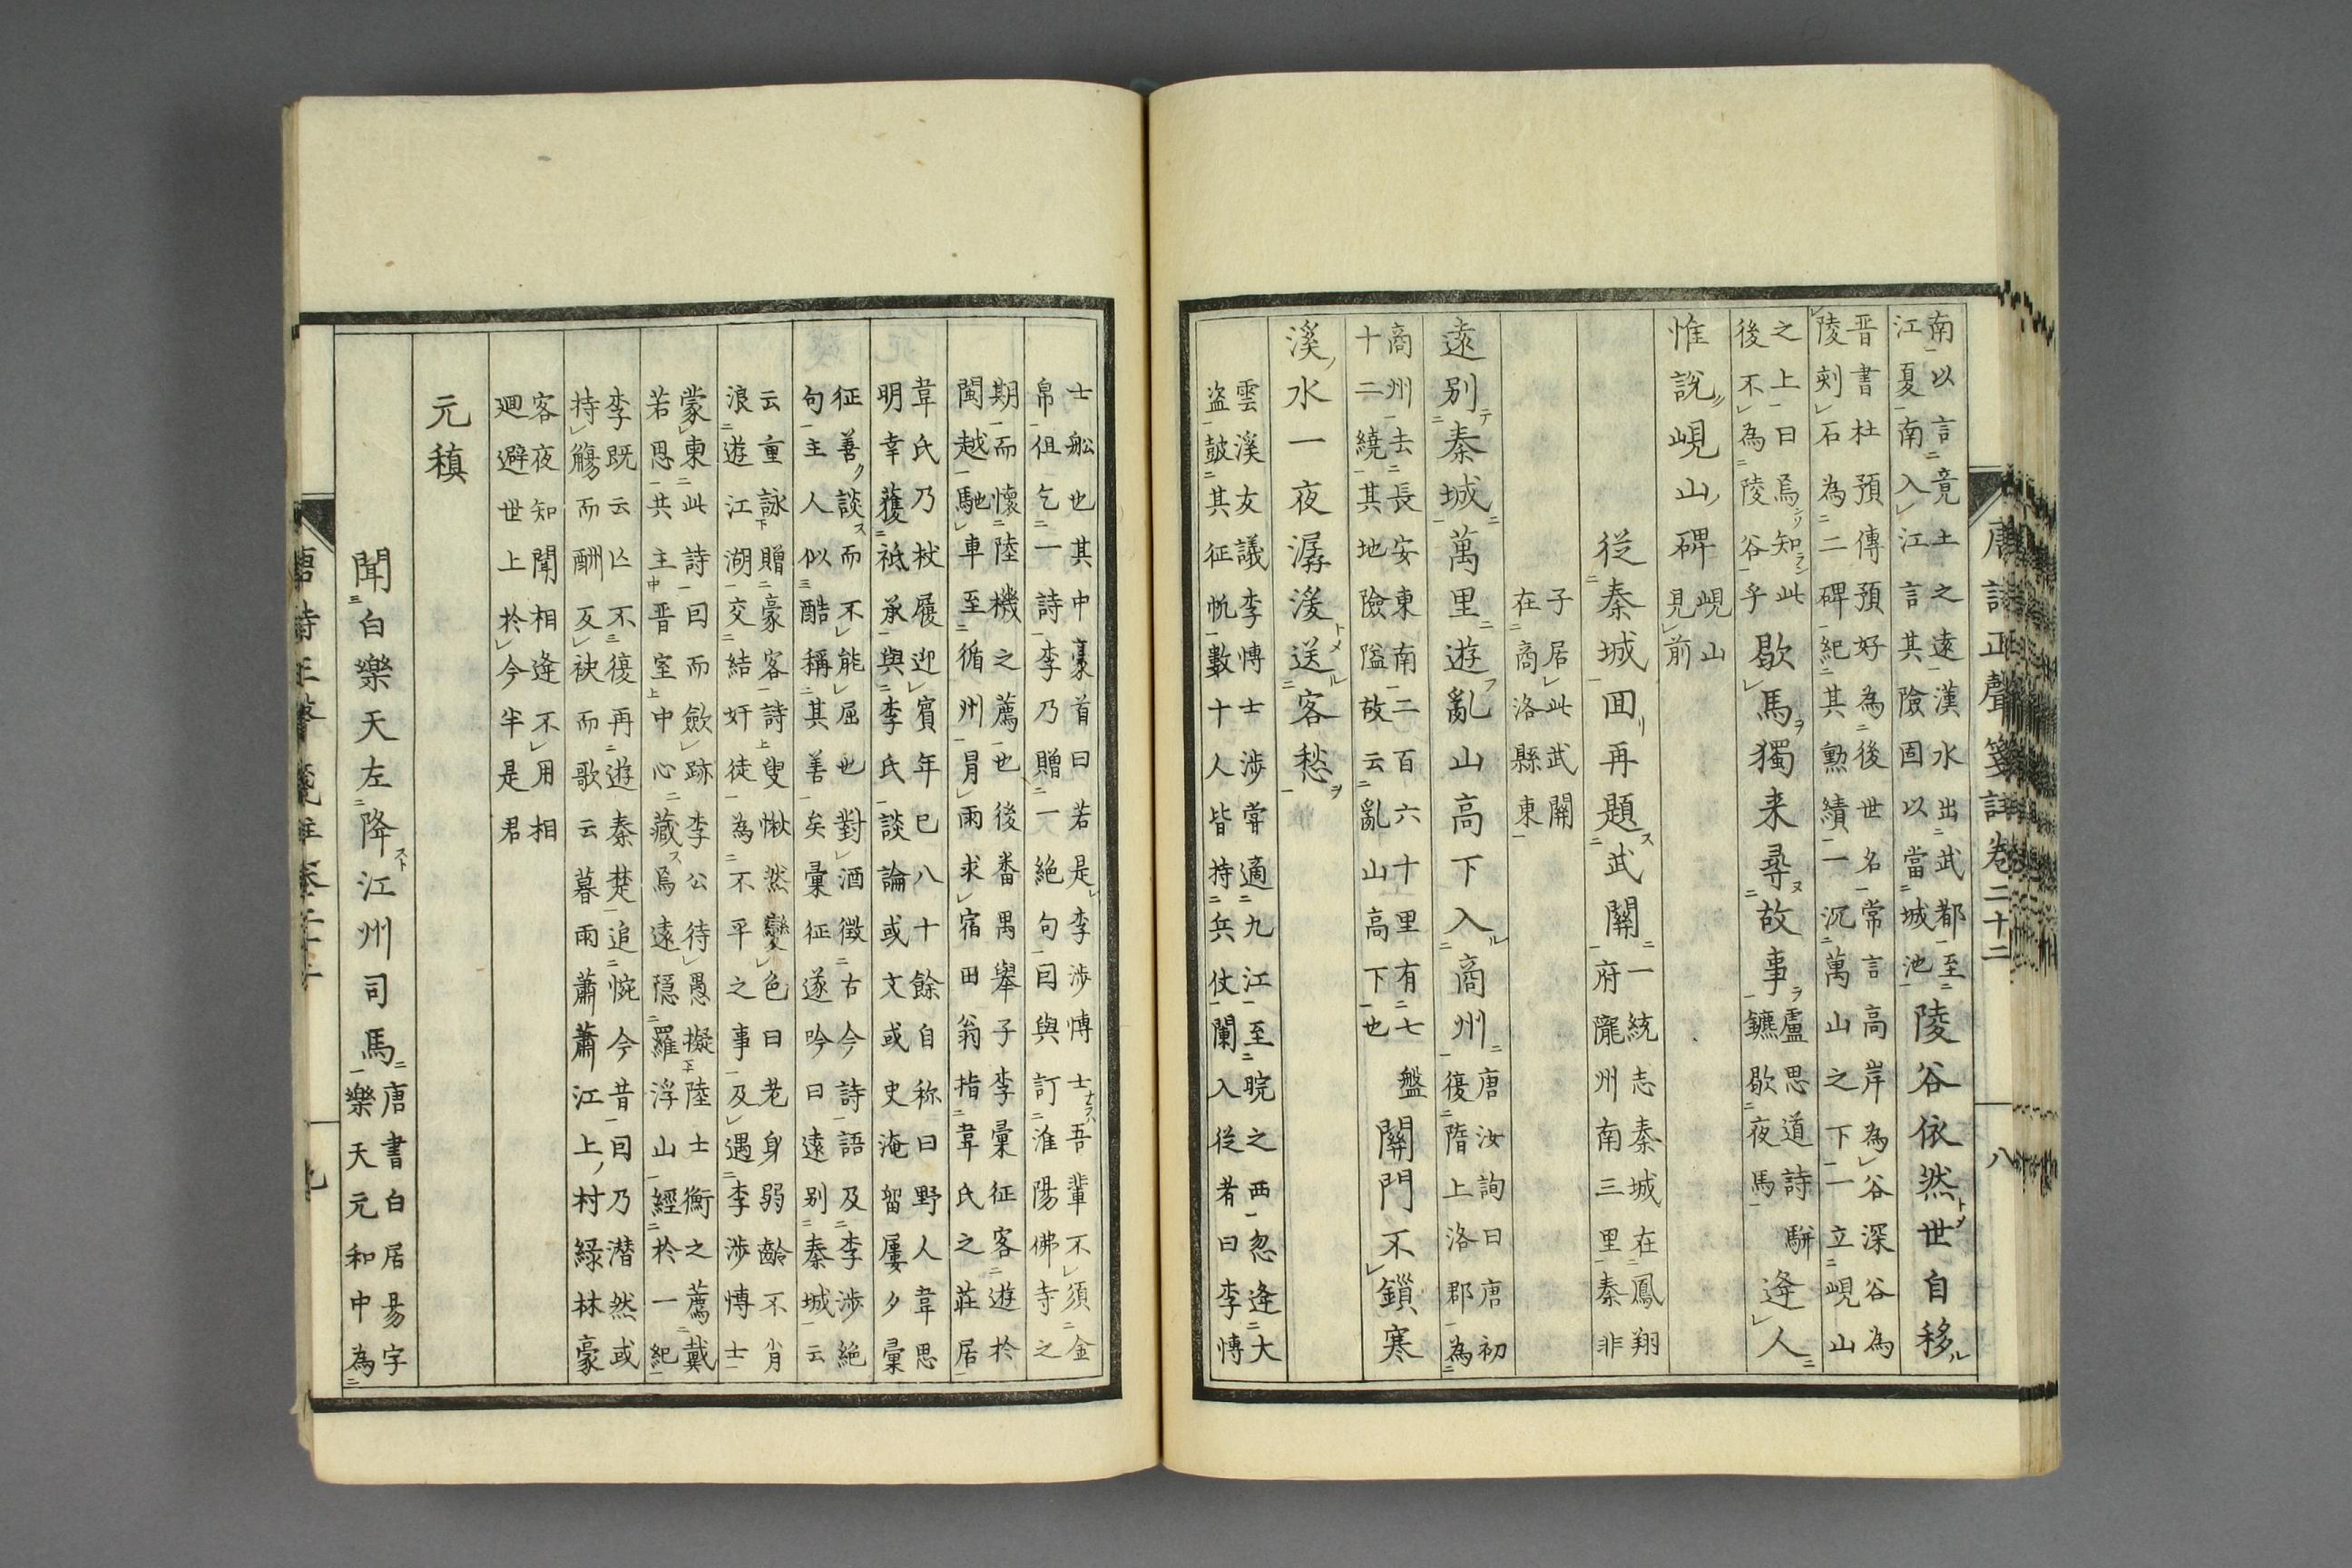 唐詩正聲箋註卷二十二 八
南以言竟土之遠漢水出武都至
江夏南入江言其險固以當城池
陵谷依然世自移
晋書杜預傳預好為後世名常言高岸為谷深谷為
陵刻石為二碑紀其勲績一沉萬山之下一立峴山
之上曰焉知此
後不為陵谷乎
歇馬獨来尋故事
盧思道詩駢
鑣歇夜馬
逢人
惟說峴山碑
峴山
見前
従秦城回再題武關
一統志秦城在鳳翔
府隴州南三里秦非
子居此武關
在商洛縣東
遠别秦城萬里遊亂山高下入商州
唐汝詢曰唐初
復隋上洛郡為
商州去長安東南二百六十里有七盤
十二繞其地險隘故云亂山高下也
關門不鎖寒
溪水一夜潺湲送客愁
雲溪友議李博士渉甞適九江至晥之西忽逢大
盗鼓其征帆數十人皆持兵仗闌入従者曰李博
士舩也其中豪首曰若是李渉博士吾輩不須金
帛但乞一詩李乃贈一絶句曰與訂淮陽佛寺之
期而懷陸機之薦也後畨禺舉子李彙征客遊於
閩越馳車至循州冒雨求宿田翁指韋氏之莊居
韋氏乃杖履迎賓年巳八十餘自称曰野人韋思
明幸獲祗承與李氏談論或文或史淹留屢夕彙
征善談而不能屈也對酒徴古今詩語及李渉絶
句主人似酷稱其善矣彙征遂吟曰遠别秦城云
云重詠贈豪客詩叟愀然變色曰老身弱齡不肖
浪遊江湖交結奸徒為不平之事及遇李渉博士
蒙柬此詩曰而歛跡李公待愚擬陸士衡之薦戴
若思共主晋室中心藏焉遠隠羅浮山經於一紀
李既云亡不復再遊秦楚追惋今昔曰乃潜然或
持觴而酬反袂而歌云暮雨蕭蕭江上村緑林豪
客夜知聞相逢不用相
廻避世上於今半是君
元稹
聞白樂天左降江州司馬
唐書白居易字
樂天元和中為